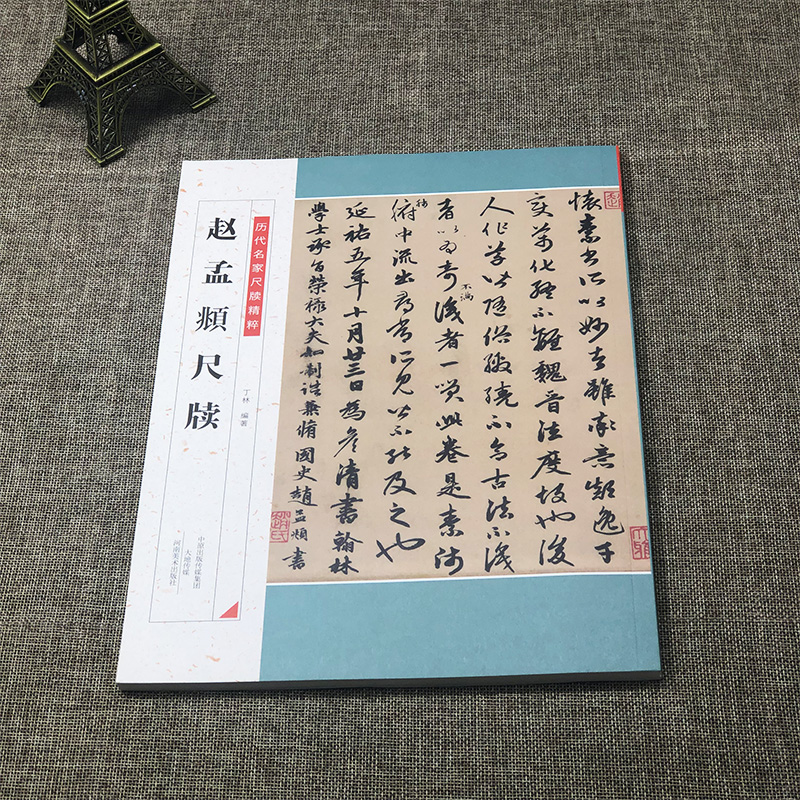 历代名家尺牍精粹
赵孟頫尺牍
丁林 编著
中原出版传媒集团
大地传媒
河南美术出版社
懷素書所以妙者雖率意顛逸千
變萬化終不離魏晉法度故也後
人作草皆隨俗繳繞不合古法不識
者以為奇不滿識者一笑此卷是素師
肺腑中流出尋常所見皆不能及之也
延祐五年十月廿三日為彥清書翰林
學士承旨榮祿大夫知制誥兼脩國史趙孟頫書